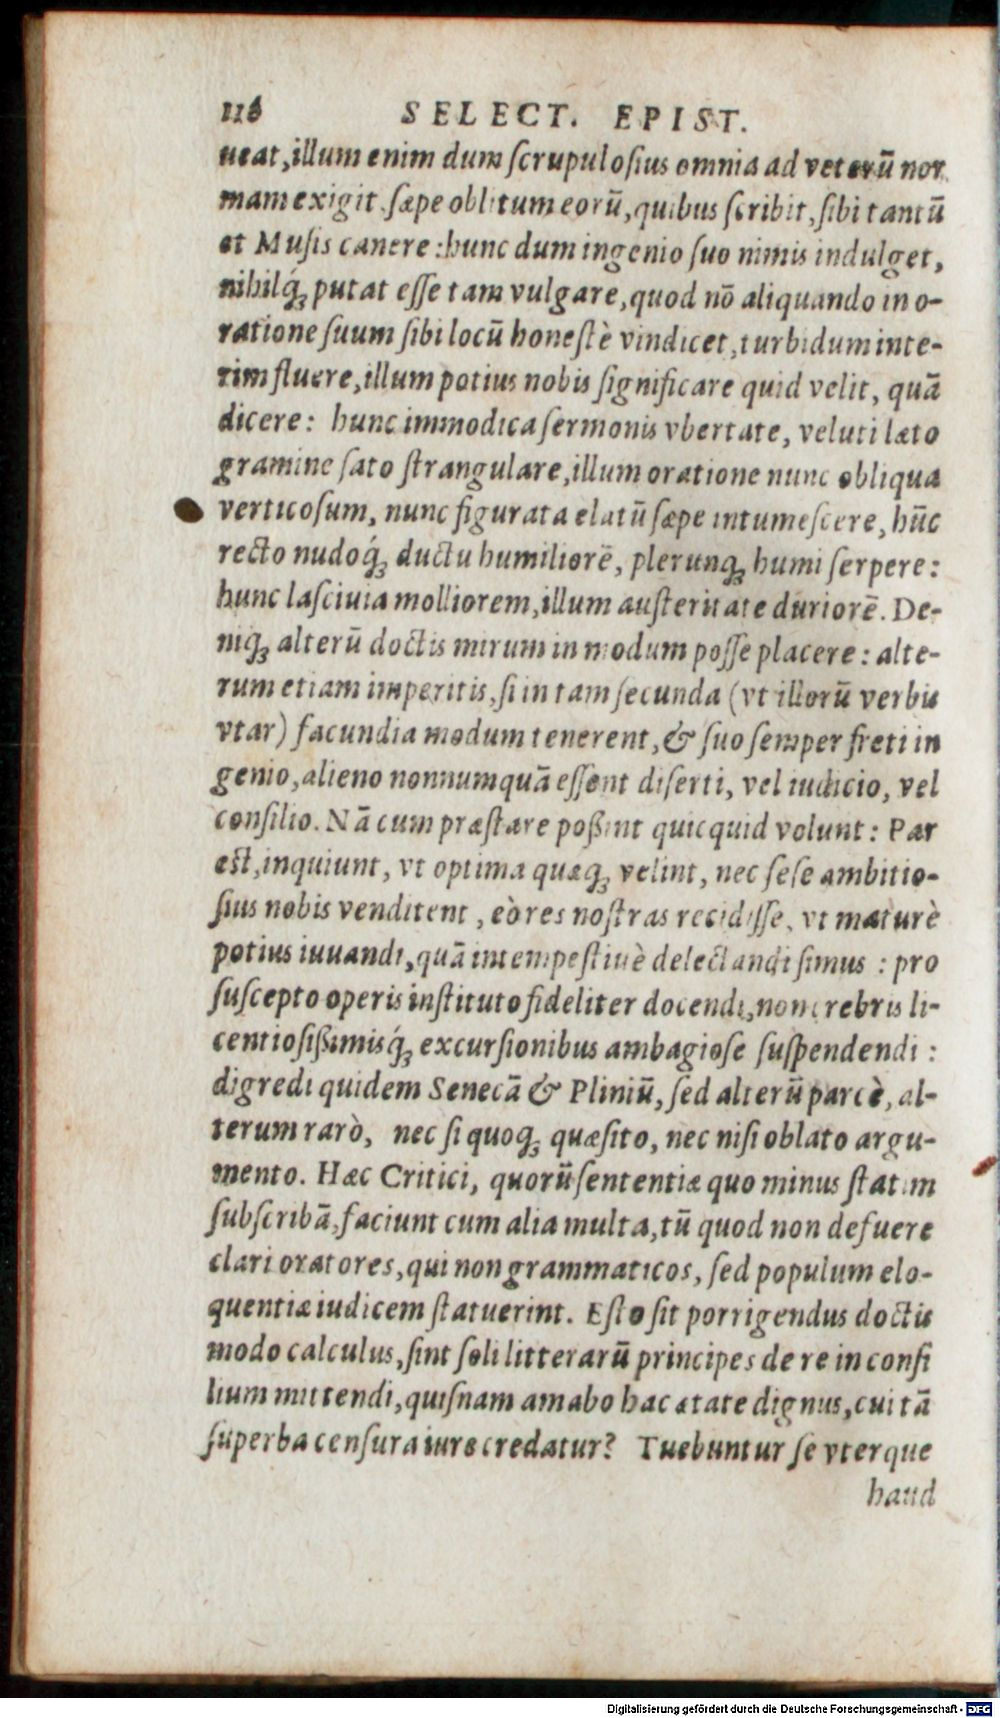 116 SELECT. EPIST.
ueat, illum enim dum ſcrupuloſius omnia ad veterū nor
mam exigit, ſæpe oblitum eorū, quibus ſcribit, ſibi tantū
et Muſis canere: hunc dum ingenio ſuo nimis indulget,
nihilq́ꝫ putat eſſe tam vulgare, quod nō aliquando in o-
ratione ſuum ſibi locū honeſtè vindicet, turbidum inte-
rim fluere, illum potius nobis ſignificare quid velit, quā
dicere: hunc immodica ſermonis vbertate, veluti læto
gramine ſato ſtrangulare, illum oratione nunc obliqua
verticoſum, nunc figurata elatū ſæpe intumeſcere, hūc
recto nudoq́ꝫ ductu humiliorē, plerunqꝫ humi ſerpere:
hunc laſciuia molliorem, illum auſteritate duriorē. De-
niqꝫ alterū doctis mirum in modum poſſe placere: alte-
rum etiam imperitis, ſi in tam ſecunda (vt illorū verbis
vtar) facundia modum tenerent, & ſuo ſemper freti in
genio, alieno nonnumquā eſſent diſerti, vel iudicio, vel
conſilio. Nā cum præſtare poßint quicquid volunt: Par
eſt, inquiunt, vt optima quæqꝫ velint, nec ſeſe ambitio-
ſius nobis venditent, eò res noſtras recidiſſe, vt maturè
potius iuuandi, quā intempeſtiuè delectandi ſimus: pro
ſuſcepto operis inſtituto fideliter docendi, non crebris li-
centioſißimisq́ꝫ excurſionibus ambagioſe ſuſpendendi:
digredi quidem Senecā & Pliniū, ſed alterū parcè, al-
terum rarò, nec ſi quoqꝫ quæſito, nec niſi oblato argu-
mento. Hæc Critici, quorū ſententiæ quo minus ſtatim
ſubſcribā, faciunt cum alia multa, tū quod non defuere
clari oratores, qui non grammaticos, ſed populum elo-
quentiæ iudicem ſtatuerint. Eſto ſit porrigendus doctis
modo calculus, ſint ſoli litterarū principes de re in conſi
lium mittendi, quiſnam amabo hac ætate dignus, cui tā
ſuperba cenſura iure credatur? Tuebuntur ſe vterque
haud
Digitalisierung gefördert durch die Deutsche Forschungsgemeinschaft - DFG